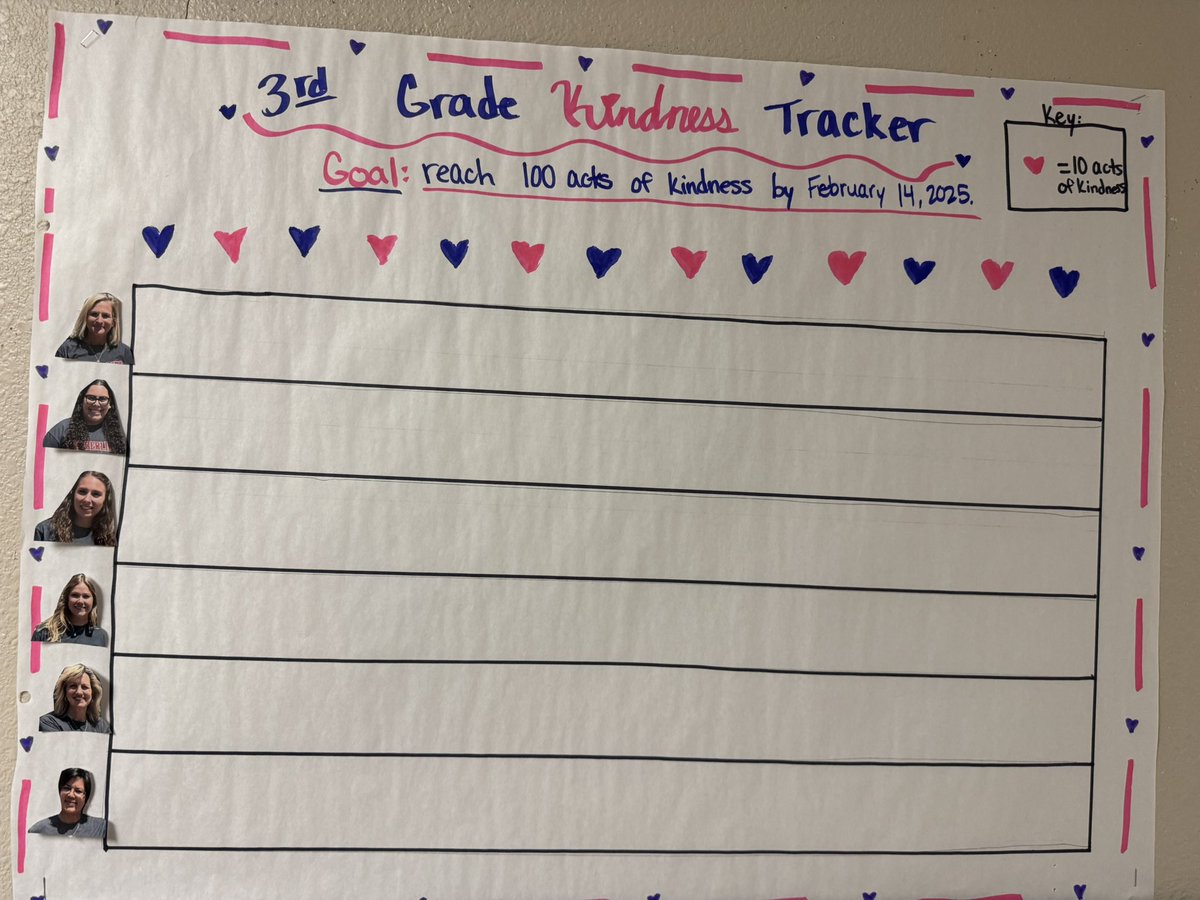 3rd Grade Kindness Tracker
Goal: reach 100 acts of kindness by February 14, 2025.
Key:
= 10 acts
of kindness